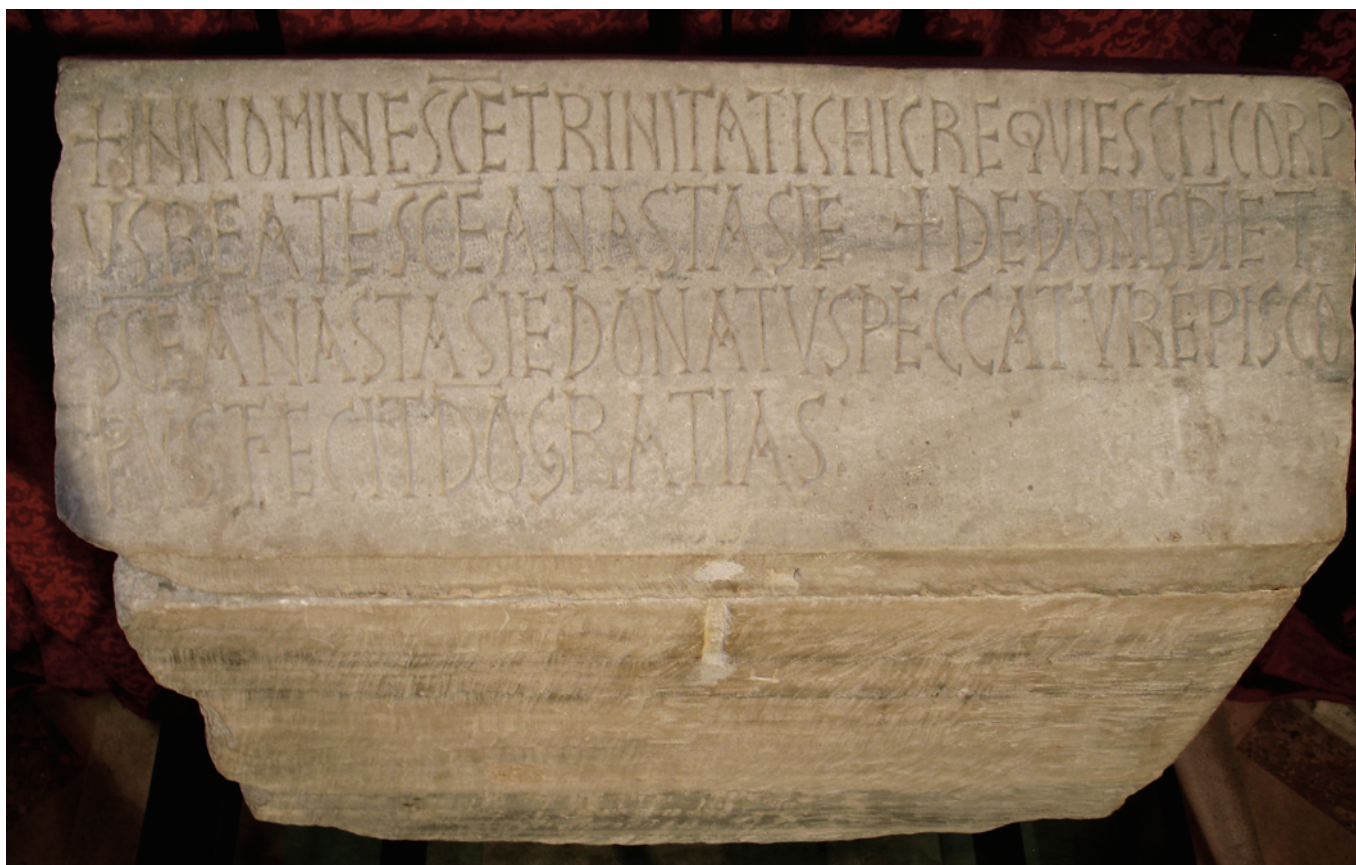 + INNOMINESC̅ETRINITATISHICREQVIESCITCORP
VSBEATESC̅EANASTASIE + DEDONISD̅IET̅
SC̅EANASTASIEDONATVSPECCATVREPISCO
PVSFECITD̅OGRATIAS